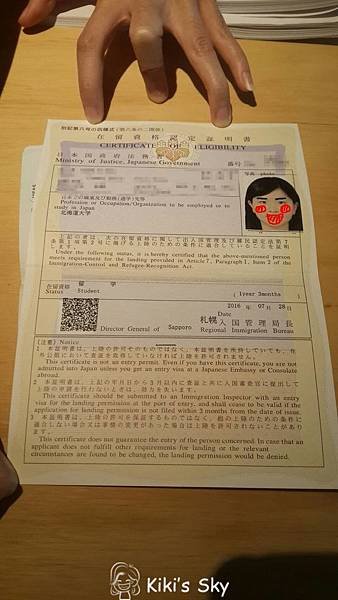 在留資格認定証明書
CERTIFICATE OF ELIGIBILITY
日本国政府法務省
Ministry of Justice, Japanese Government
番号
写真 photo
日本での職業及び勤務(通学)先等
Profession or Occupation/Organization to be employed to or
study in Japan.
北海道大学
上記の者は、次の在留資格に関して出入国管理及び難民認定法第7
条第1項第2号に掲げる上陸のための条件に適合していることを証明し
ます。
Under the following status, it is hereby certified that the above-mentioned person
meets requirement for the landing provided in Article 7, Paragraph 1, Item 2 of the
Immigration-Control and Refugee-Recognition Act.
在留資格 留 学
Status Student ( 1year 3months )
2016 年 07 月 28 日
Date
札幌入国管理局長
Director General of Sapporo Regional Immigration Bureau
(注意) Notice
1 本証明書は、上陸の許可そのものではなく、本証明書を所持していても、在
外公館において査証を取得していなければ上陸を許可されません。
This certificate is not a landing permission. Even if you have this certificate, you are not
admitted into Japan unless you get an entry visa at a Japanese Embassy or Consulate
abroad.
2 本証明書は、上記の年月日から3月以内に査証と共に入国審査官に提出して
上陸の申請を行わないときは、効力を失います。
This certificate should be submitted to an Immigration Inspector with an entry
visa for the landing permission at the port of entry, and shall cease to be valid if the
application for landing permission is not filed within 3 months from the date of issue.
3 本証明書は、上陸の許可を保証するものではなく、他の上陸のための条件に
適合しない場合又は事情の変更があった場合は上陸を許可されないことがあり
ます。
This certificate does not guarantee the entry of the person concerned. In case that an
applicant does not fulfill other requirements for landing or the relevant
circumstances are found to be changed, the landing permission would be denied.
Kiki's Sky